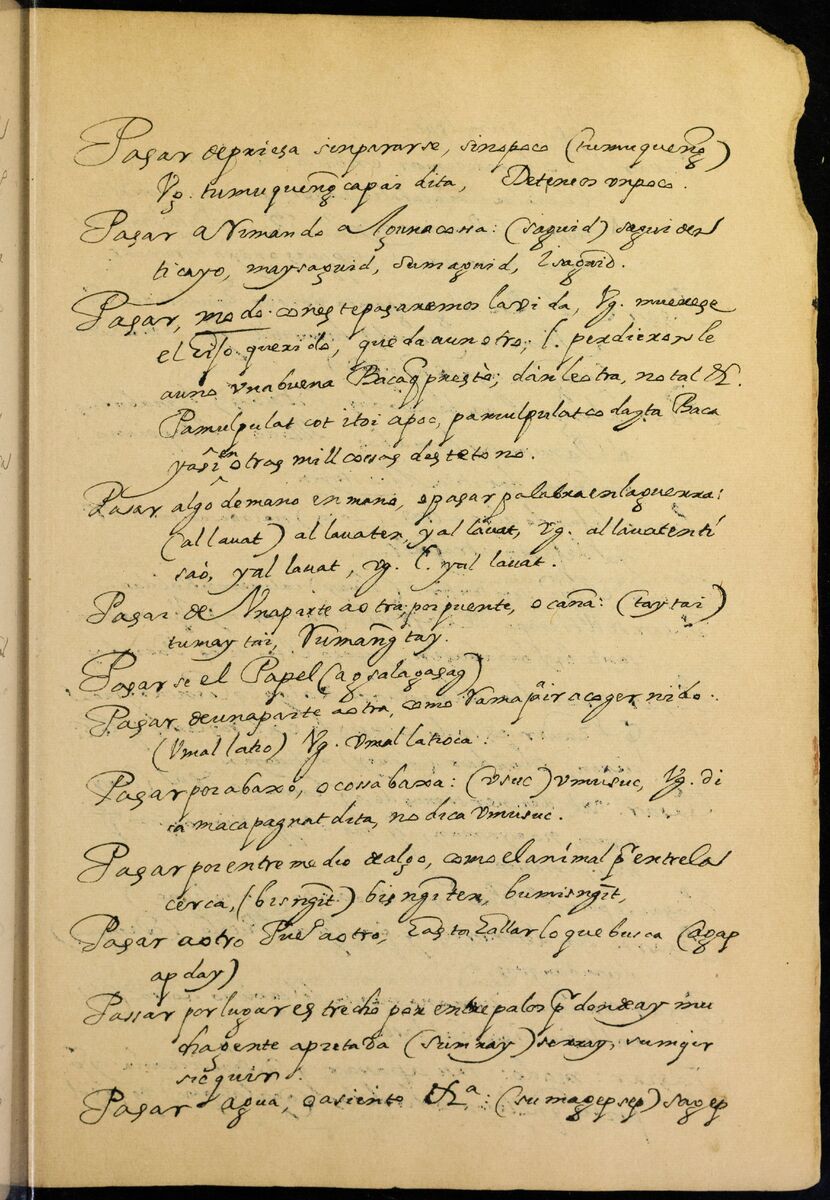 Pasar depriesa sinpararse, sinopoco (tumuqueng̃)
Vg. tumuqueng̃ca pai dita, Deteneos unpoco.
Pasar arrimando a lounacossa: (saguid) saguiden
ticayo, maysaguid, sumaguid, Isaguid.
Pasar, modo. conestepasaremos lavida, Vg. muerese
el hijo querido, queda aun otro; l. perdieronle
auno unabuena Baca q̃ presto; danle otra, no tal &.
Pamulpulat cot itoi apoc, pamulpulatco dayta Baca
yasi en otras mill cossas destetono.
Pasar algo de mano en mano, o pasar palabra enlaguerra:
(allauat) allauaten, yallauat, vg. allauatentí
saò, yallauat, vg. l. yallauat.
Pasar de Unaparte aotra, por puente, o caña: (taytai)
tumaytai, tay.
Pasarse el Papel (agsalagasag)
Pasar de unaparte aotra, como rama para ir acoger nido.
(Umallatio) Vg. umallatioca.
Pasar por abaxo, o cossa baxa: (usuc) umusuc, Vg. di
ca macapagnat dita, no dica umusuc.
Pasar por entremedio de algo, como el animal pr entrela
cerca, (bisngit) bisngiten, bumisngit,
Pasar aotro Puel aotro, hasta hallar lo que busca (agap
apday)
Passar por lugar estrecho por entre palos pr dondeay mu
chagente apretada (sumray) serray, sumgir
sirguir.
Pasar agua, oasiento &a: (sumagepsep) sagep